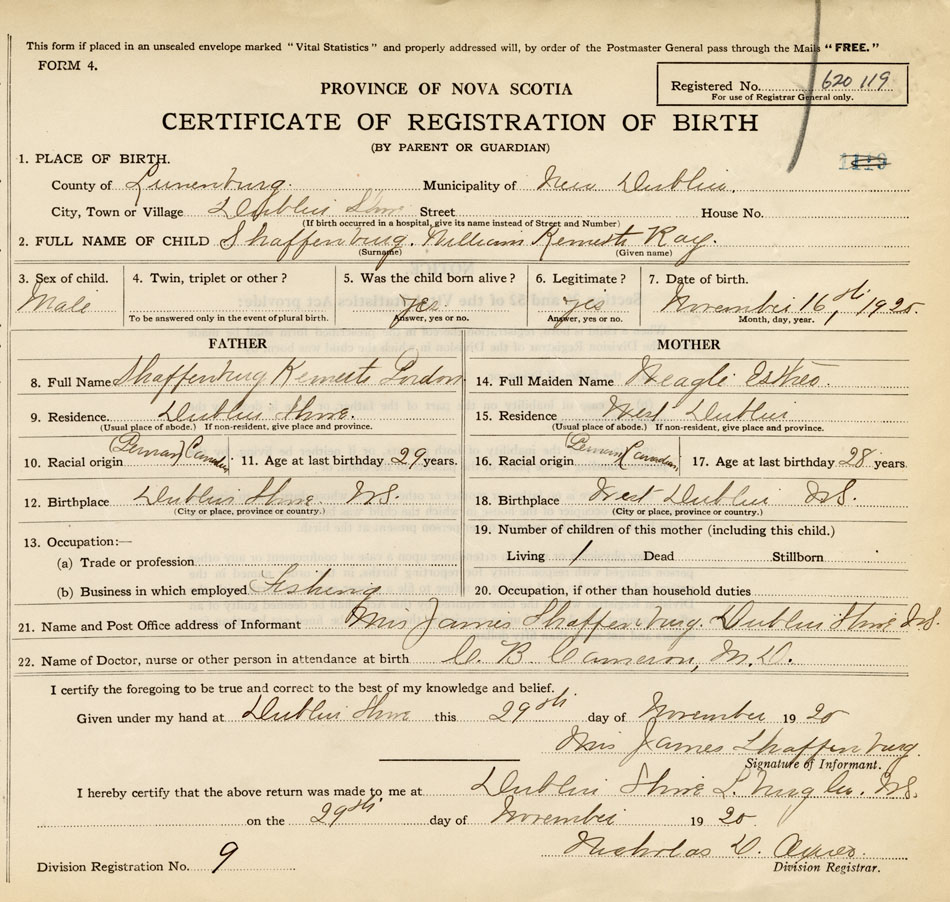 This form if placed in an unsealed envelope marked "Vital Statistics" and properly addressed will, by order of the Postmaster General pass through the Mails "FREE."
FORM 4.
Registered No. 620 119
For use of Registrar General only.
PROVINCE OF NOVA SCOTIA
CERTIFICATE OF REGISTRATION OF BIRTH
(BY PARENT OR GUARDIAN)
1. PLACE OF BIRTH.
County of Lunenburg. Municipality of New Dublin.
City, Town or Village Dublin Shore Street House No.
(If birth occurred in a hospital, give its name instead of Street and Number)
2. FULL NAME OF CHILD Shaffenburg. William Kenneth Ray.
(Surname) (Given name)
3. Sex of child. 4. Twin, triplet or other? 5. Was the child born alive? 6. Legitimate? 7. Date of birth.
Male yes yes November 16th, 1920.
To be answered only in the event of plural birth. Answer, yes or no. Answer, yes or no. Month, day, year.
FATHER
8. Full Name Shaffenburg Kenneth Gordon
9. Residence. Dublin Shore.
(Usual place of abode.) If non-resident, give place and province.
10. Racial origin (German) Canadian 11. Age at last birthday 29 years.
12. Birthplace Dublin Shore N.S.
(City or place, province or country.)
13. Occupation:—
(a) Trade or profession
(b) Business in which employed Fishing
MOTHER
14. Full Maiden Name Esther.
15. Residence West Dublin
(Usual place of abode.) If non-resident, give place and province.
16. Racial origin (German) Canadian 17. Age at last birthday 28 years.
18. Birthplace West Dublin N.S.
(City or place, province or country.)
19. Number of children of this mother (including this child.)
Living 1 Dead Stillborn
20. Occupation, if other than household duties
21. Name and Post Office address of Informant Mrs James Shaffenburg. Dublin Shore N.S.
22. Name of Doctor, nurse or other person in attendance at birth C. B. Cameron, M.D.
I certify the foregoing to be true and correct to the best of my knowledge and belief.
Given under my hand at Dublin Shore this 29th day of November 1920
Mrs James Shaffenburg
Signature of Informant.
I hereby certify that the above return was made to me at Dublin Shore N.S.
on the 29th day of November 1920.
Nicholas D.
Division Registrar.
Division Registration No. 9